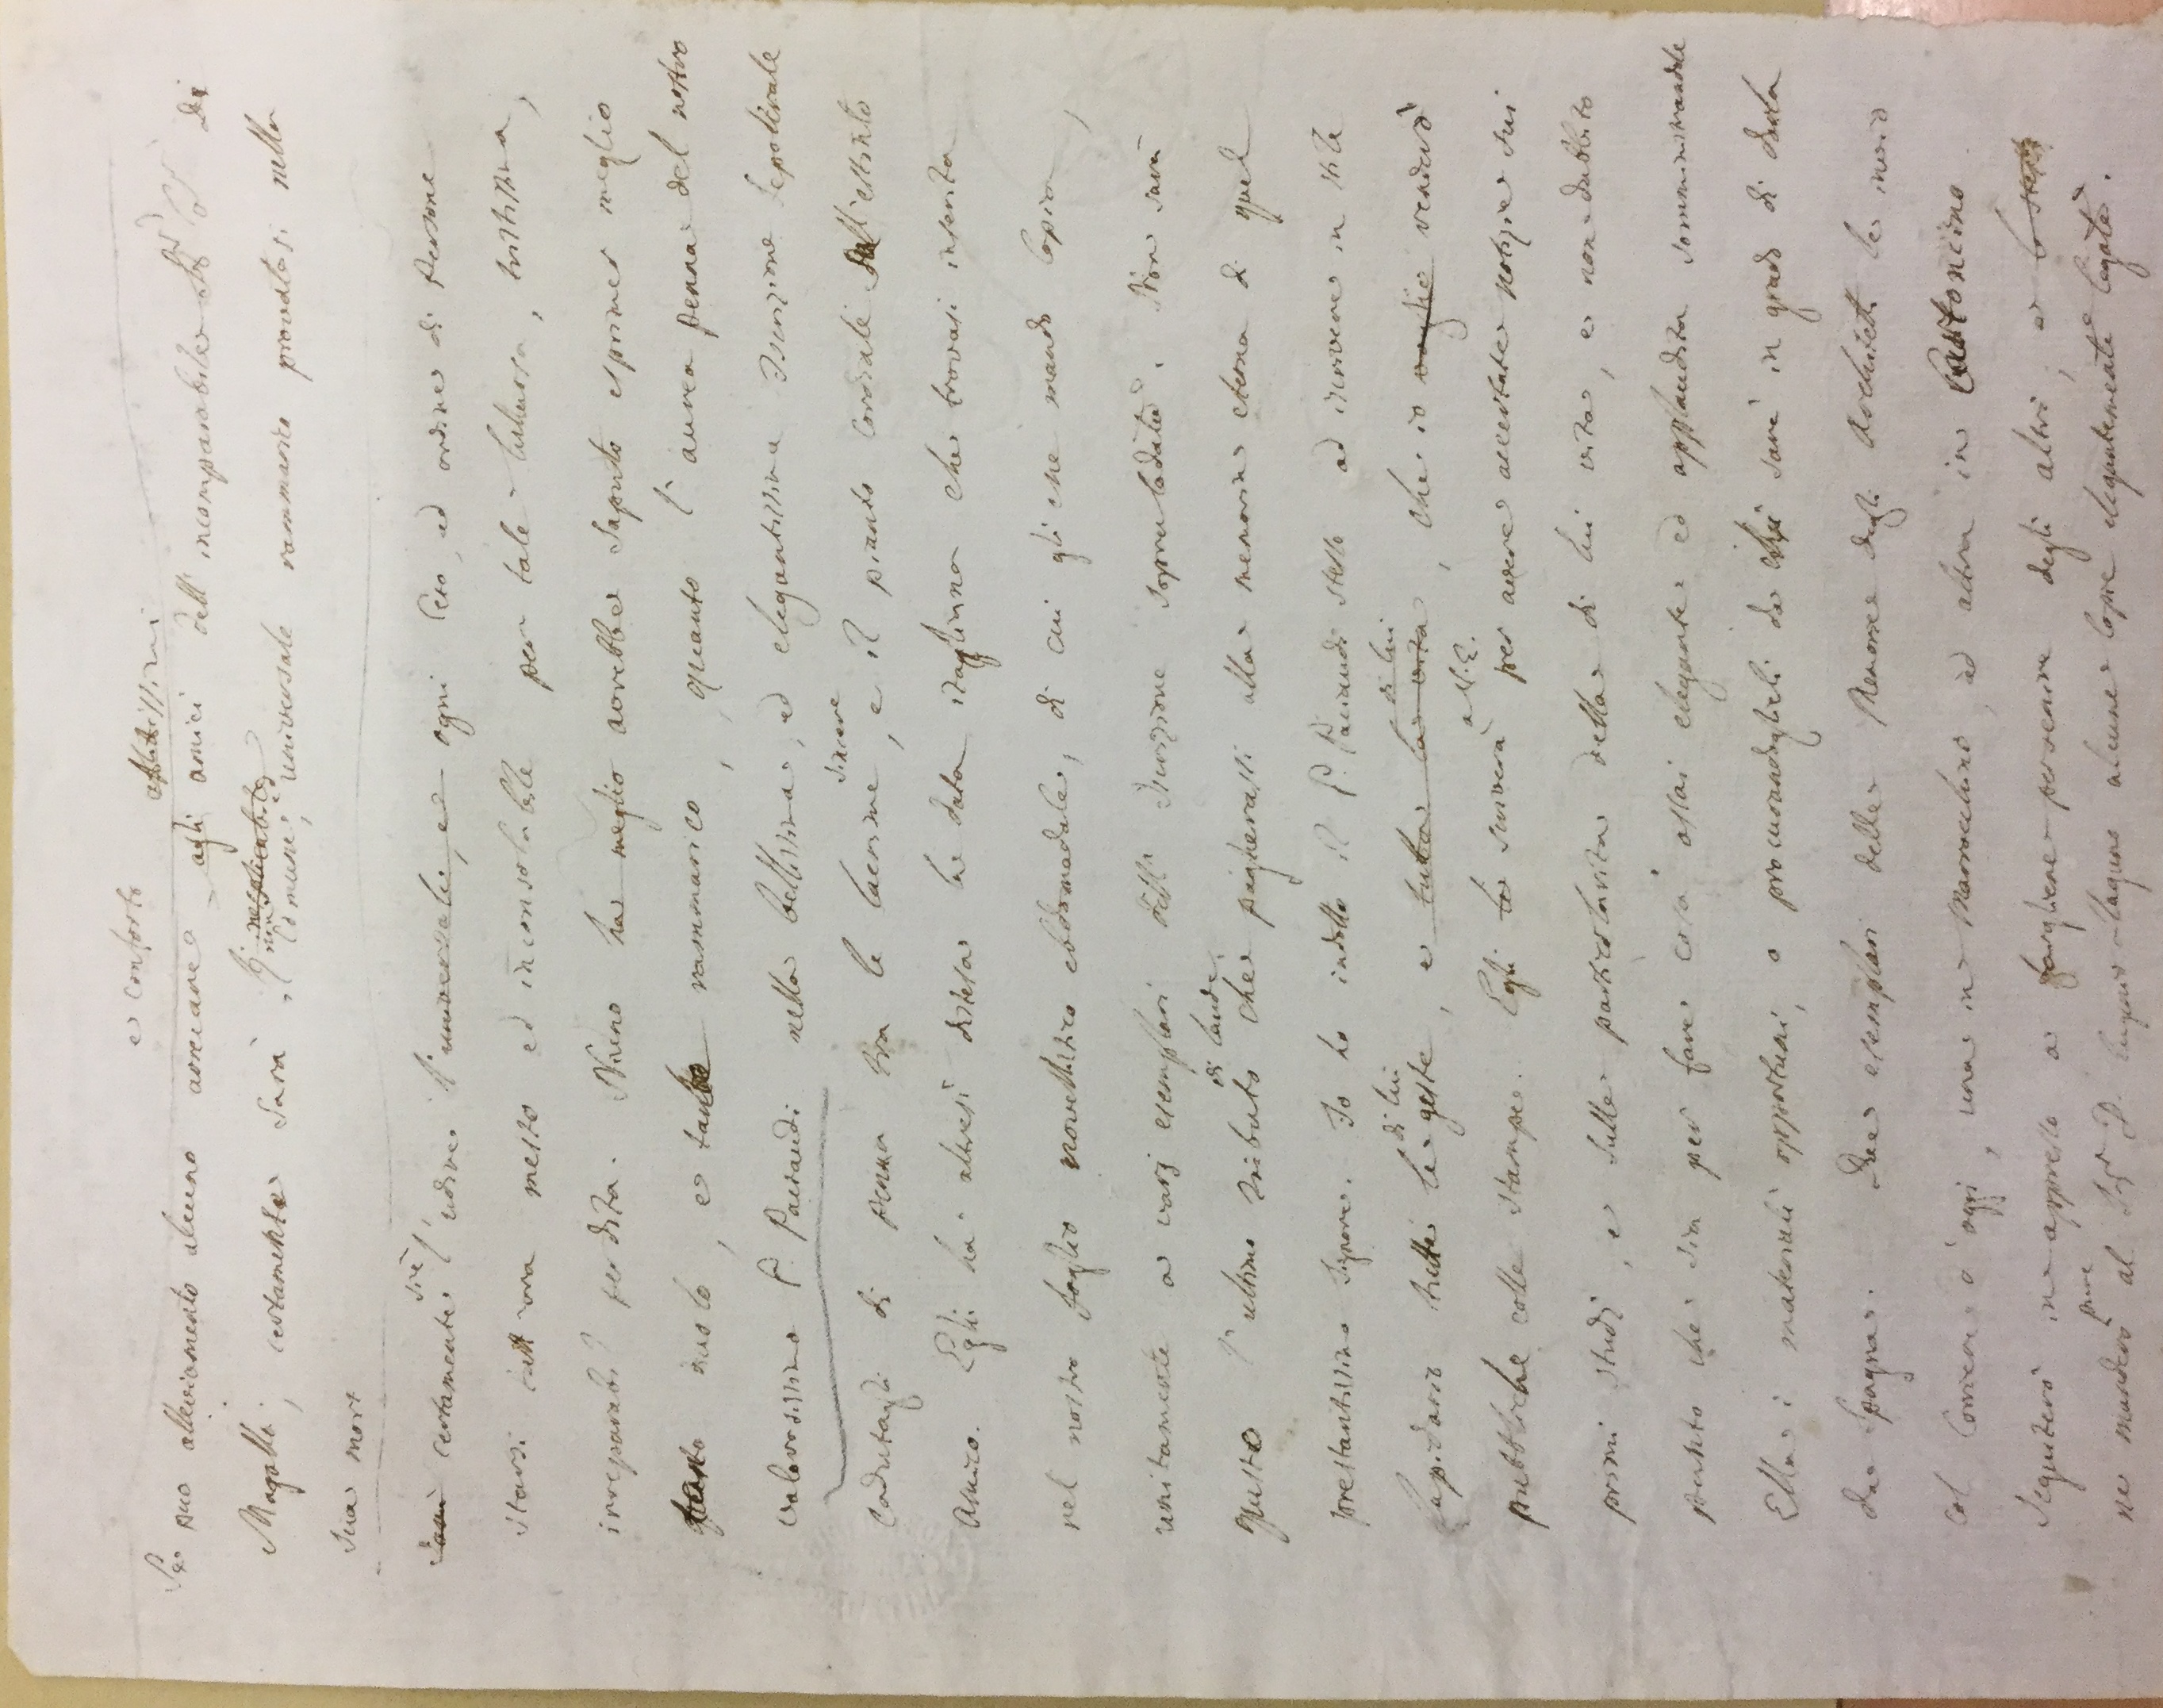 e conforto afflittissimi
Se può alleviamento alcuno arrecare agli amici dell' incomparabile Sigr Di
non esplicabile
Magalli, certamente sarà il comune, ed universale rammarico provatosi nella
sua mort
siè
Sarà certamente l'udire l'universale, e ogni Ceto, ed ordine di Persone
starsi tutt'ora mesto ed inconsolabile per tale luttuosa, tristissima,
irreparabil perdita. Niuno ha meglio avrebbe saputo esprimer meglio
questo duolo, e tanto rammarico, quanto l'aurea penna del nostro
valorosissimo P. Paciaudi nella bellissima, ed elegantissima Iscrizione Sepolcrale
sincere
cadutagli di penna tra le lacrime, e il pianto cordiale dell'estinto
Amico. Egli ha altresì distesa la data that trovasi inserita
nel nostro foglio novellistico ebdomadale, di cui gli ne mando Copia,
unitamente a varj esemplari della Iscrizione sopralodata. Non sarà
di laude,
questo l'ultimo tributo che pagherassi alla memoria eterna di quel
prestantissimo Signore. Io ho indotto il P. Paciaudi stesso ad iscrivere in stile
di lui di lui
Lapidario tutte le geste, e tutta la vita, che io voglio renderò
a V.E.
pubbliche colle stampe. Egli to scriverà per avere accertate notizie sui
primi studj, e sulle particolarità della di lui vita, e non dubbito
punto che sia per fare cosa assai elegante ed applaudita somministrandole
Ella i materiali opportuni, o procurandoglieli da chi sarà in grado di darla
da Spagna. Due esemplari delle Memorie degli Architetti le invio
col Corriere d'oggi, una in Marrocchino, ed altra in Cartoncino
Seguiterò in appresso a fargliene pervenire degli altri, e lo stesso
pure
ne manderò al Sigr D. alcune copie elegantemente legate.